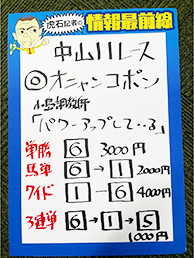 虎石記者の
情報最前線
中山11レース
◎オニャンコポン
小島調教師
「パワーアップして…る」
単勝 6 3000円
馬単 6→1 2000円
ワイド 1-6 4000円
3連単 6→1→5
1000円